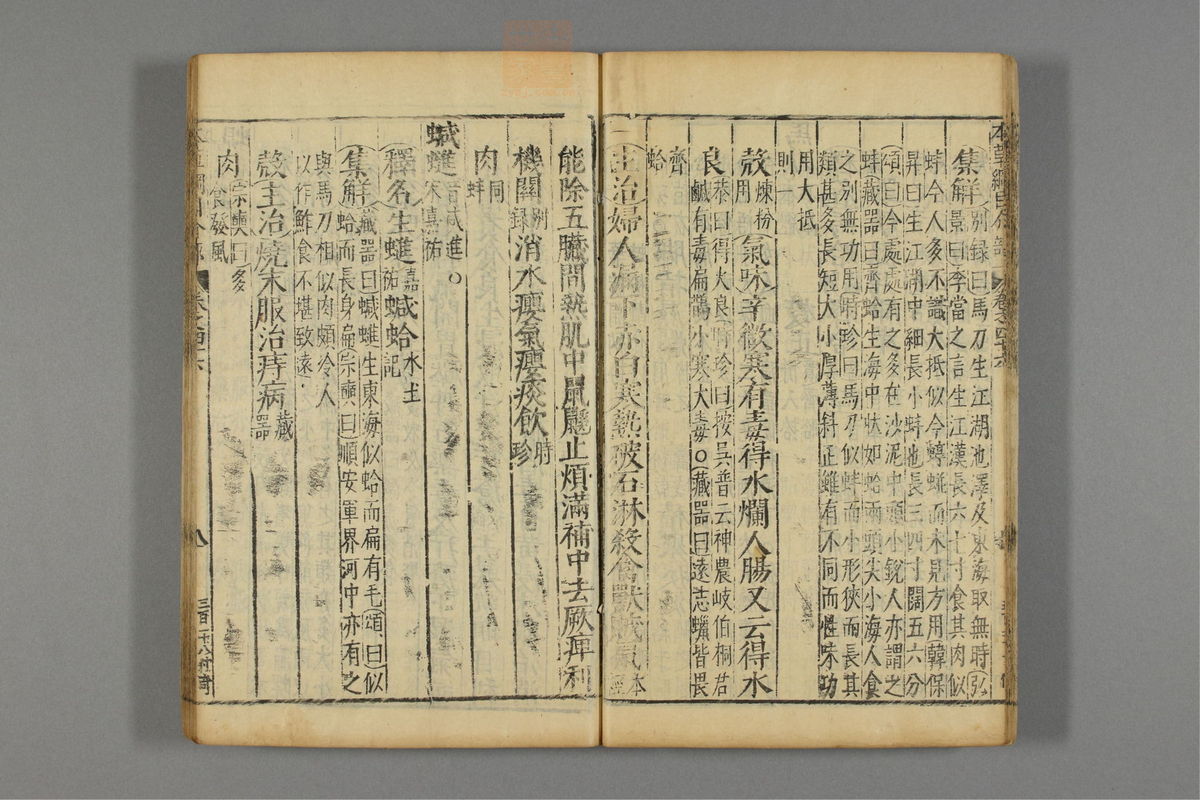 集解別録曰馬刀生江湖池澤及東海取無時弘
景曰李當之言生江漢長六七寸食其肉似
蚌今人多不識大抵似今蟶而未見方用韓保
昇曰生江湖中細長小蚌也長三四寸闊五六分
頌曰今處處有之多在沙泥中頭小鋭人亦謂之
蚌藏器曰齊蛤生海中狀如蛤兩頭尖小海人食
之别無功用時珍曰馬刀似蚌而小形狹而長其
類甚多長短大小厚薄斜正雖有不同而性味功
用大抵
則一
殼煉粉用氣味辛微寒有毒得水爛人腸又云得水
良恭曰得火良時珍曰按吳普云神農岐伯桐君
鹹有毒扁鵲小寒大毒○藏器曰遠志蠟皆畏
齊
蛤
主治婦人漏下赤白寒熱破石淋殺禽獸賊氣本經
能除五臟間熱肌中鼠鼷止煩滿補中去厥痺利
機關別録消水癭氣癭痰飲時珍
肉同
蚌
蝛蜼音咸進○
宋嘉祐
釋名生蜼嘉祐蝛蛤水土記
集解藏器曰蝛蜼生東海似蛤而扁有毛頌曰似
蛤而長身扁宗奭曰順安軍界河中亦有之
與馬刀相似肉頗冷人
以作鮓食不堪致遠
殼主治燒末服治痔病藏器
肉宗奭曰多
食發風